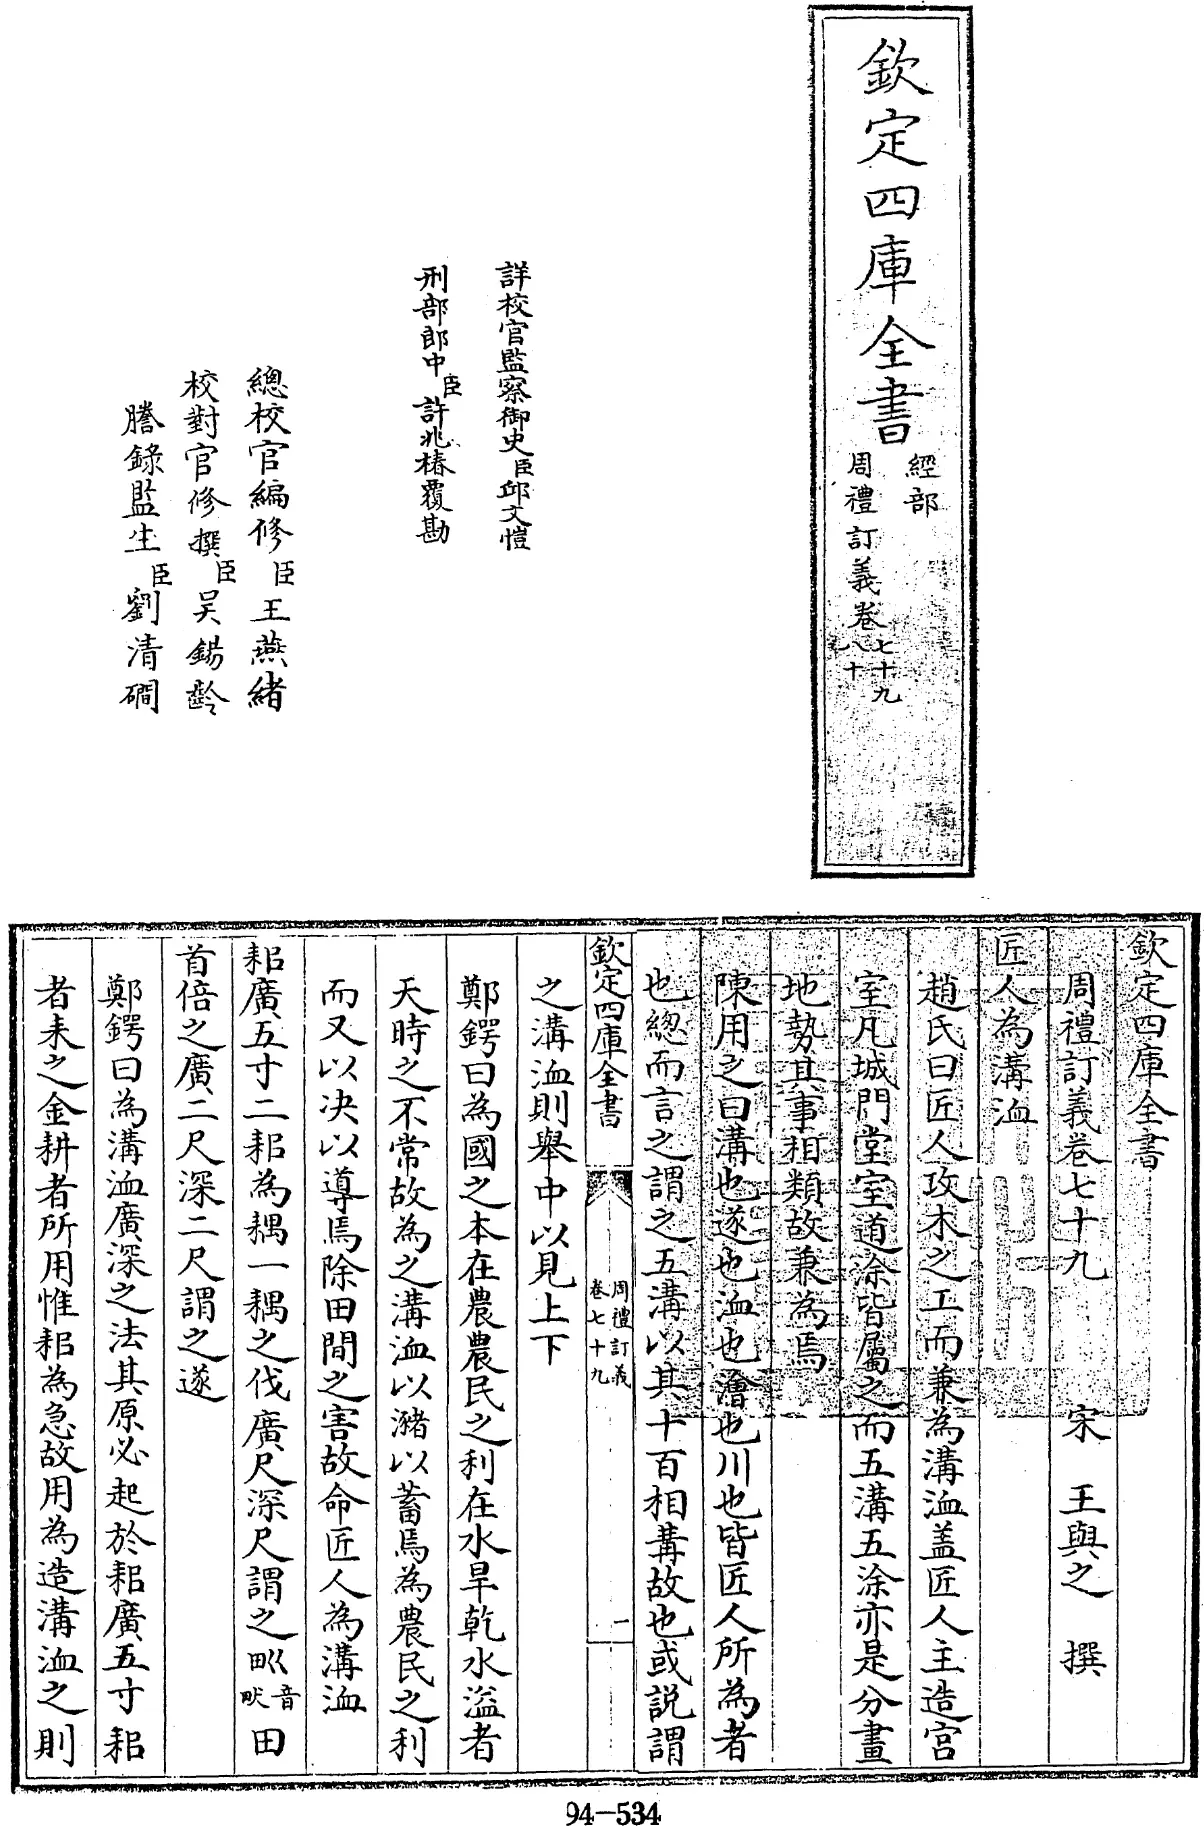 欽定四庫全書
經部
周禮訂義卷七十九
八十
詳校官監察御史臣邱文愷
刑部郎中臣許兆椿覆勘
總校官編修臣王燕緒
校對官修撰臣吳錫齡
謄錄監生臣劉清磵
欽定四庫全書
周禮訂義卷七十九 宋 王與之 撰
匠人為溝洫
趙氏曰匠人攻木之工而兼為溝洫盖匠人主造宫
室凡城門堂室道涂皆屬之而五溝五涂亦是分畫
地勢其事相類故兼為焉
陳用之曰溝也遂也洫也澮也川也皆匠人所為者
也總而言之謂之五溝以其十百相冓故也或説謂
欽定四庫全書
周禮訂義
卷七十九
一
之溝洫則舉中以見上下
鄭鍔曰為國之本在農農民之利在水旱乾水溢者
天時之不常故為之溝洫以瀦以蓄焉為農民之利
而又以决以導焉除田間之害故命匠人為溝洫
耜廣五寸二耜為耦一耦之伐廣尺深尺謂之𤰕音畎田
首倍之廣二尺深二尺謂之遂
鄭鍔曰為溝洫廣深之法其原必起於耜廣五寸耜
者耒之金耕者所用惟耜為急故用為造溝洫之則
94-534